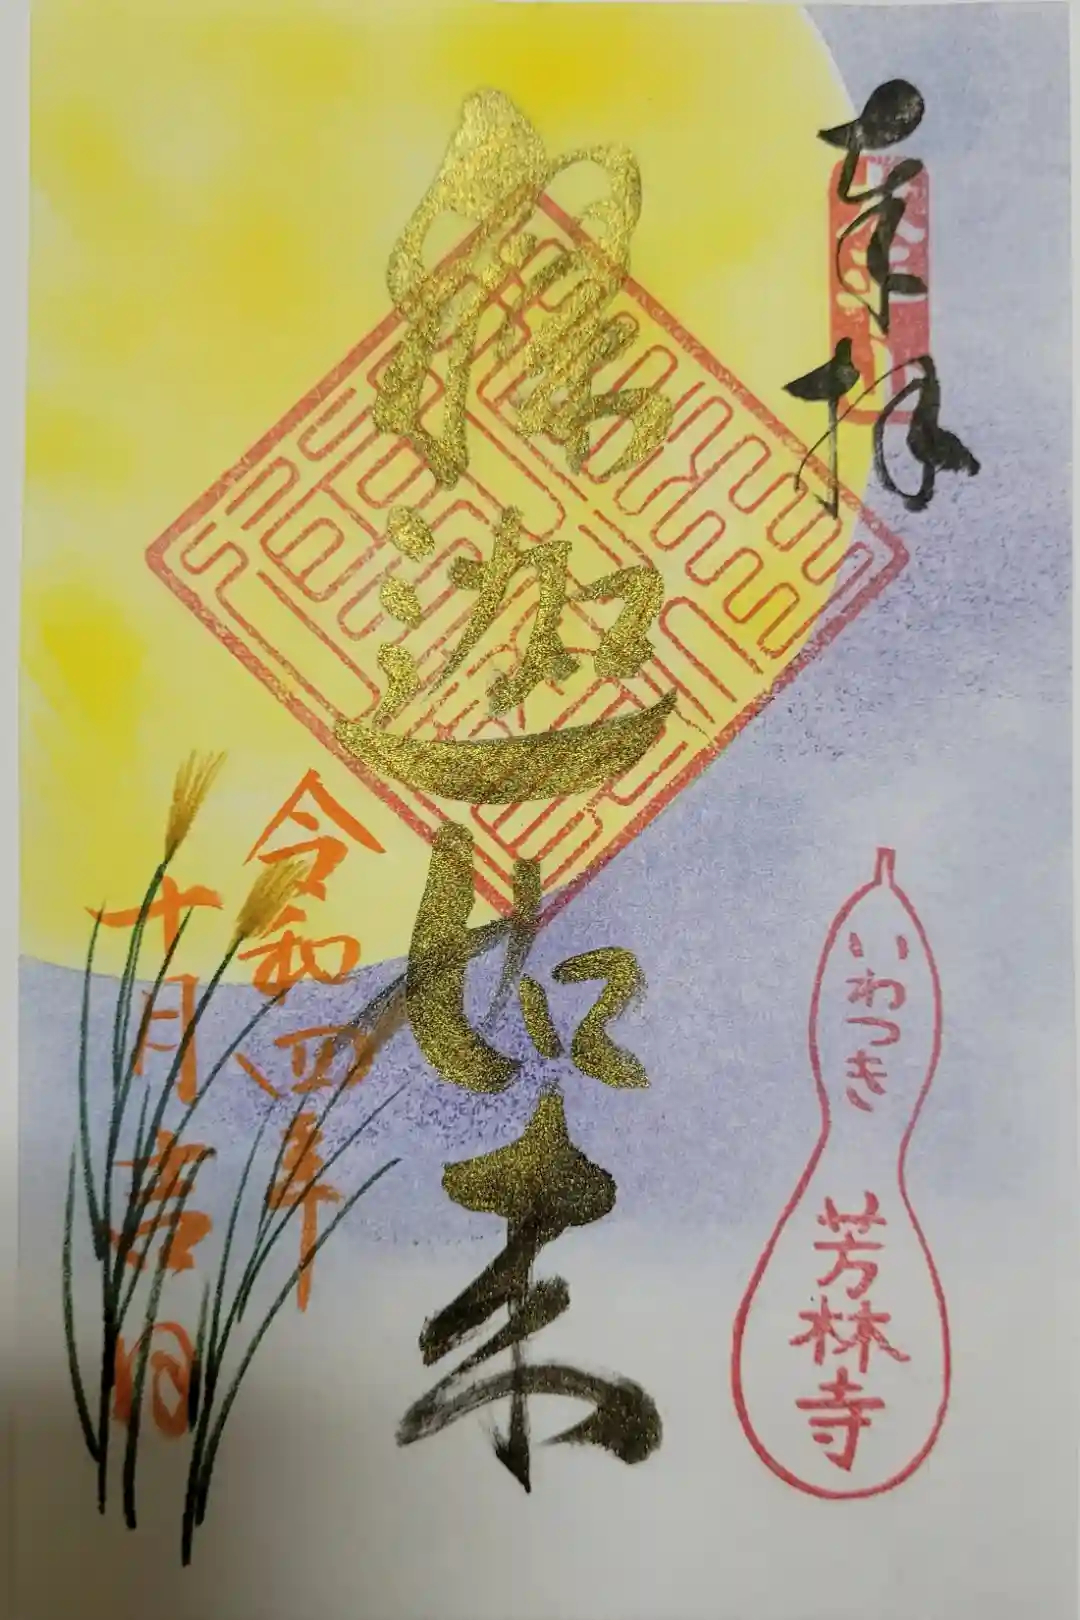 奉拝
いわつき
芳林寺
釋迦如来
令和四年
十月吉日